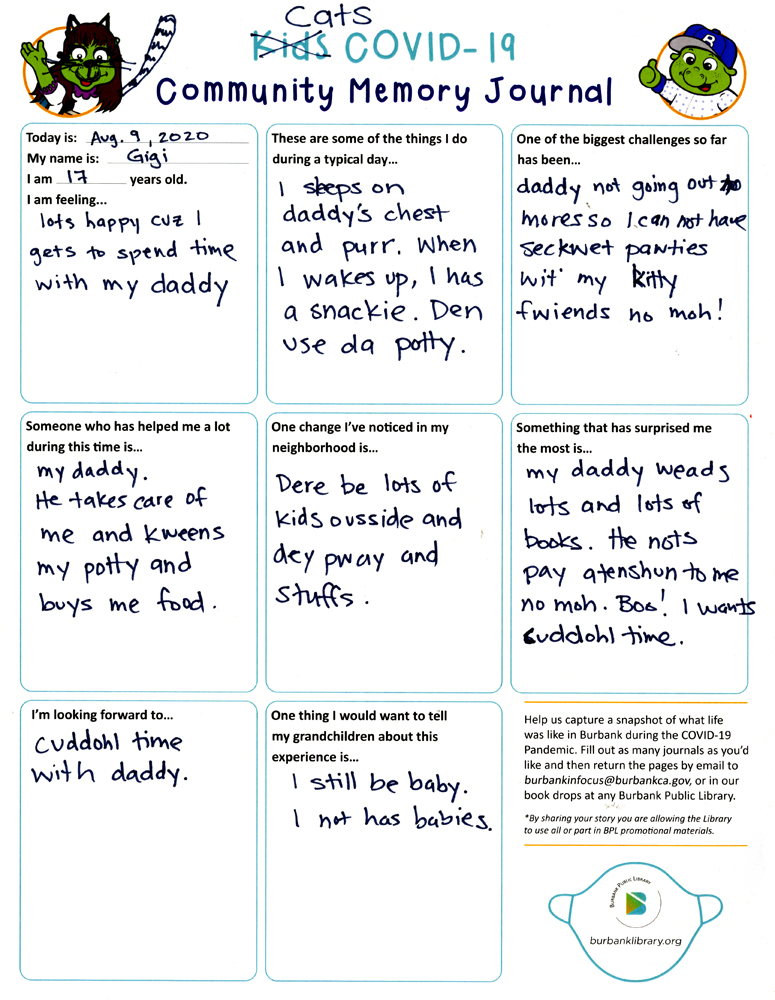 Cats
Kids COVID-19
Community Memory Journal
Today is: Aug. 9, 2020
My name is: Gigi
I am 17 years old.
I am feeling...
lots happy cuz I
gets to spend time
with my daddy
These are some of the things I do
during a typical day...
I sleeps on
daddy's chest
and purr. When
I wakes up, I has
a snackie. Den
use da potty.
One of the biggest challenges so far
has been...
daddy not going out no
mores so I can not have
seckwet pawties
wit' my kitty
fwiends no moh!
Someone who has helped me a lot
during this time is...
my daddy.
He takes care of
me and kweens
my potty and
buys me food.
One change I've noticed in my
neighborhood is...
Dere be lots of
kids ousside and
dey pway and
stuffs.
Something that has surprised me
the most is...
my daddy weads
lots and lots of
books. He nots
pay atenshun to me
no moh. Boo! I wants
cuddohl time.
I'm looking forward to...
cuddohl time
with daddy.
One thing I would want to tell
my grandchildren about this
experience is...
I still be baby.
I not has babies.
Help us capture a snapshot of what life
was like in Burbank during the COVID-19
Pandemic. Fill out as many journals as you'd
like and then return the pages by email to
burbankinfocus@burbankca.gov, or in our
book drops at any Burbank Public Library.
*By sharing your story you are allowing the Library
to use all or part in BPL promotional materials.
Burbank Public Library
burbanklibrary.org
B